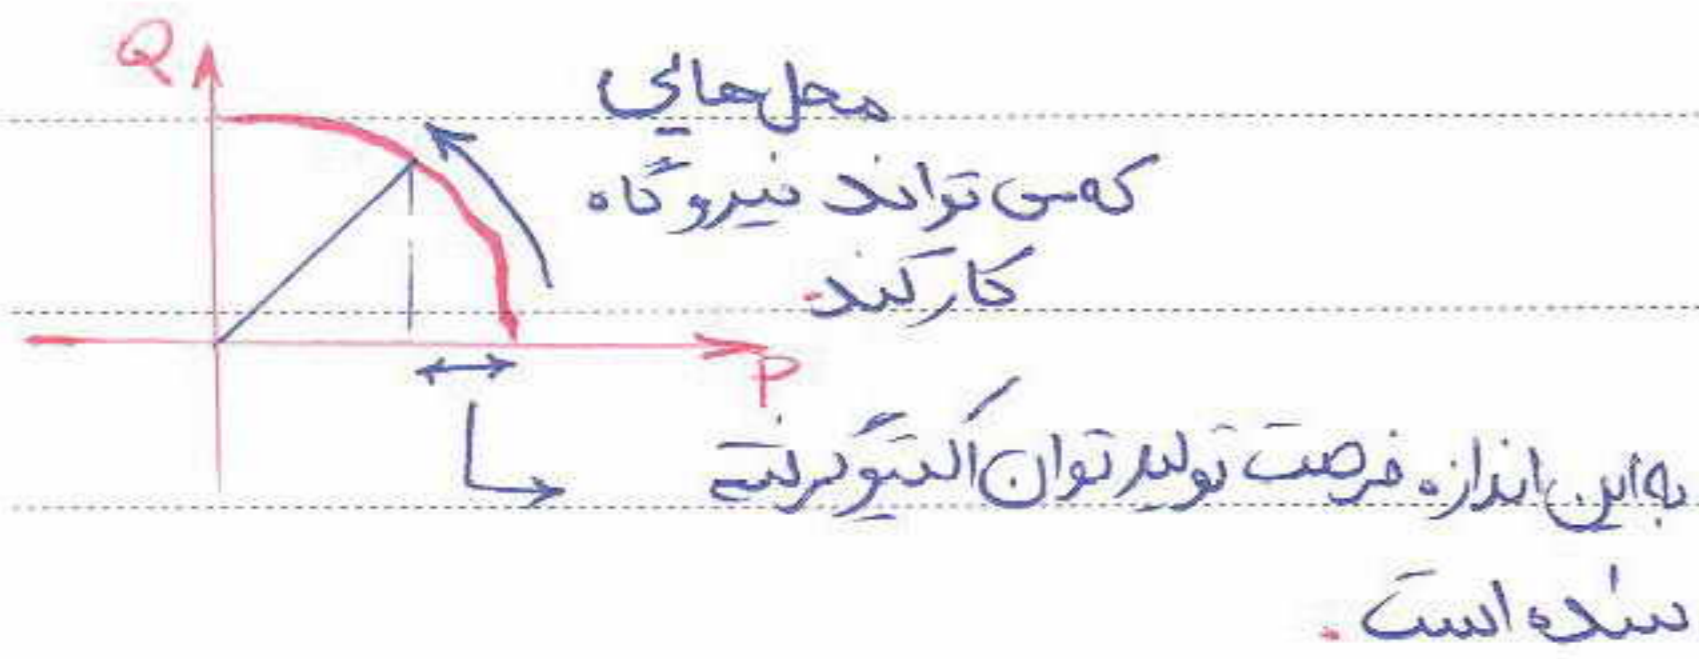 Q
محل‌هایی
که می‌تواند نیروگاه
کار کند.
P
به این اندازه فرصت تولید توان اکتیو گرفته
شده است.